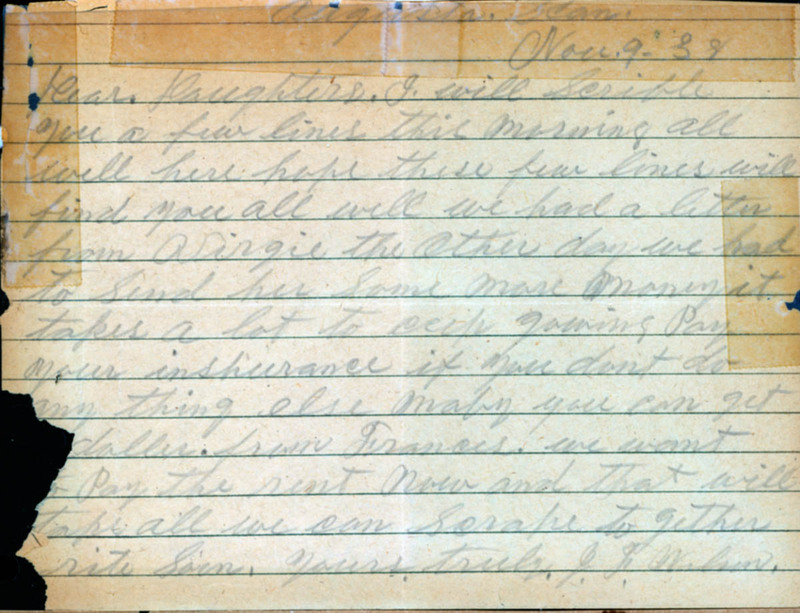 Augusta. Kan.
Nov. 9- 38
Dear. Daughters. I will Scrible
you a few lines this morning all
well here hope these few lines will
find you all well we had a letter
from Virgie the other day we had
to Send her Some more money it
takes a lot to ceep gowing Pay
your inshurance if you dont do
any thing else maby you can get
doller. from Frances. we want
Pay the rent Now and that will
take all we can Scrape to gether
rite Soon. Yours. truly. J. F. Wilson.